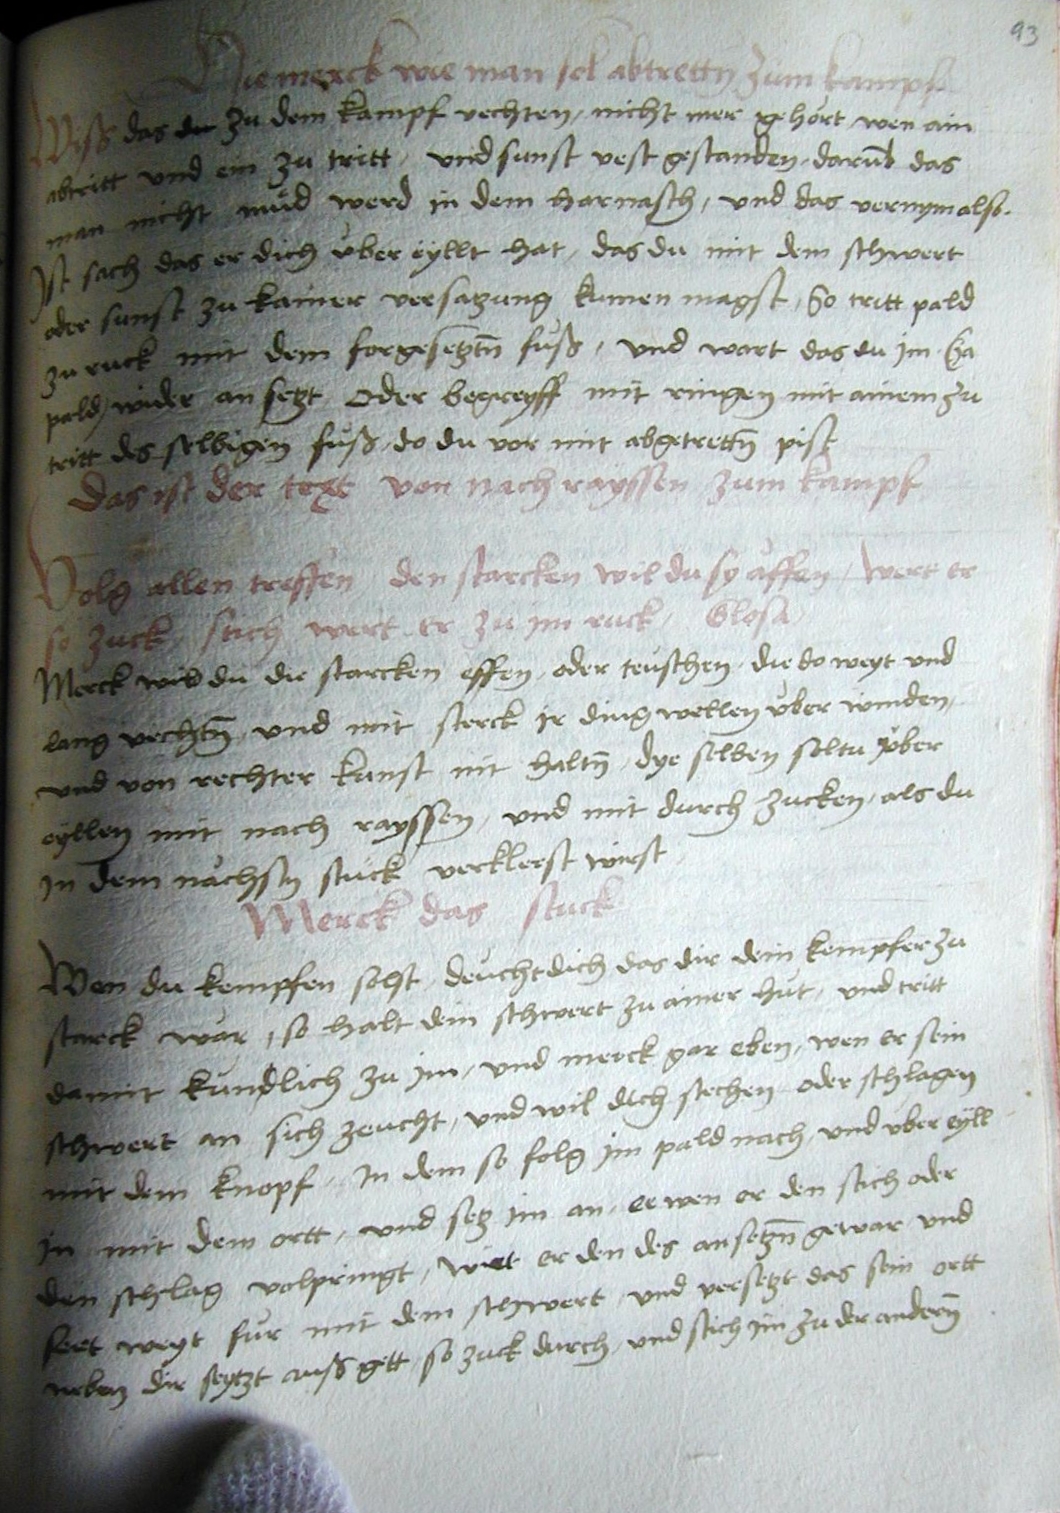 93
Hie merck wie man sol abtrettñ zum kampf
Wiss das du zu dem kampf vechten / nicht mer gehört wen ain
abtritt vnd ein zu tritt / vnd sunst vest gestanden / darub das
man nicht müd werd in dem harnasch / vnd das vernym also.
Ist sach das er dich über eyllt hat / das du mit dem schwert
oder sunst zu kainer versatzung kumen magst / So tritt pald
zu ruck mit dem forgesetztñ fuß / vnd wart das du im
pald wider an setzt Oder begreyff mit ringen mit ainem zu
tritt des selbigen fuß / do du vor mit abgetrettñ pist
Das ist der text von nachrayssen zum kampf
Volg allen treffen den starcken wil du sy äffen / Wert er
so zuck / stich wert er zu im ruck / Glosa
Merck wild du die starcken effen / oder teuschen / die do weyt vnd
lang vechtñ / vnd mit sterck ir ding wellen über winden /
vnd von rechter kunst nit haltñ / Dye selben soltu über
eyllen mit nach rayssen / vnd mit durch zucken / als du
in dem nächsty stuck verklerst wirst
Merck das stuck
Wen du kempfen solst / deücht dich das dir dein kempfer zu
starck wär / so halt dein schwert zu ainer hüt / vnd tritt
damit kundlich zu im / vnd merck gar eben / wen er sein
schwert an sich zeucht / vnd wil dich stechen oder schlagen
mit dem knopf / In dem so folg im pald nach / vnd über eyll
in mit dem ortt / vnd setz im an / er wen er den stich oder
den schlag volpringt / Wirt er den des ansetznñ gewar vnd
fert weyt für mit dem schwert / vnd versetzt das sein ortt
neben dir seytzt auß gett / so zuck durch / vnd stich im zu der andern